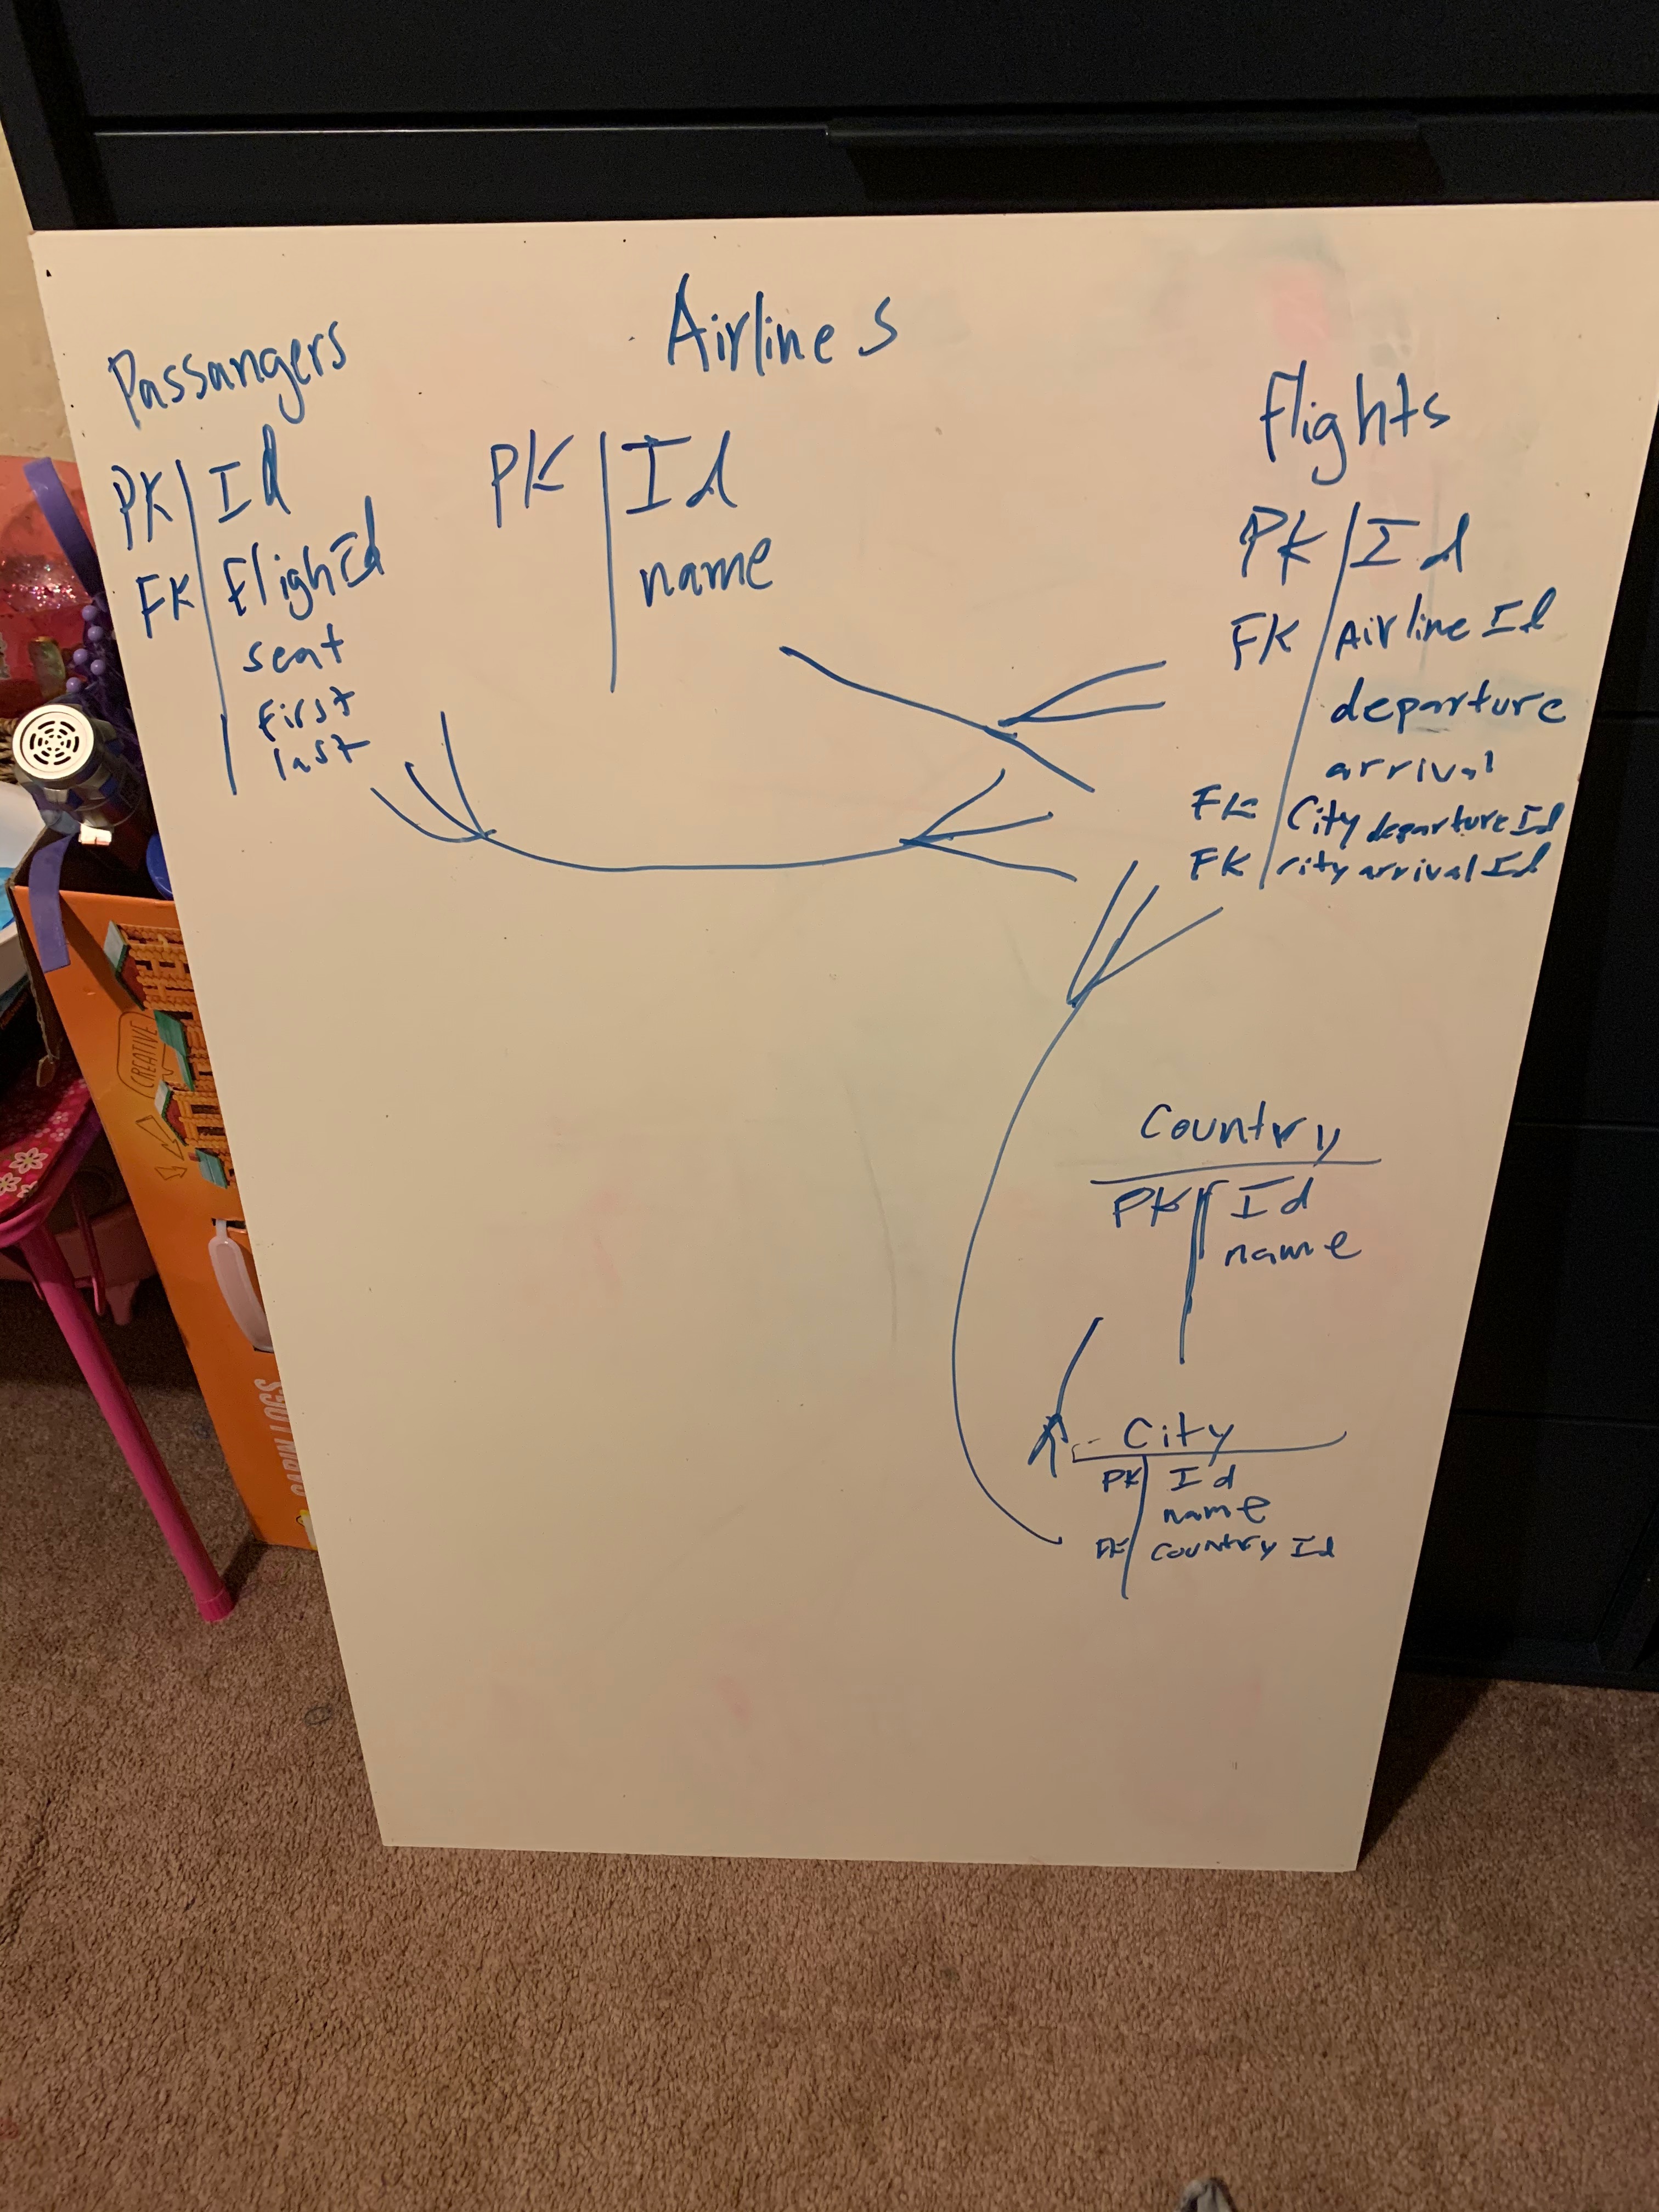 Passangers
PK Id
FK flighId
seat
first
last
Airlines
PK Id
name
flights
PK Id
FK Airline Id
departure
arrival
FK City departure Id
FK city arrival Id
Country
PK Id
name
City
PK Id
name
FK country Id
CREATIVE
CABIN LOGS